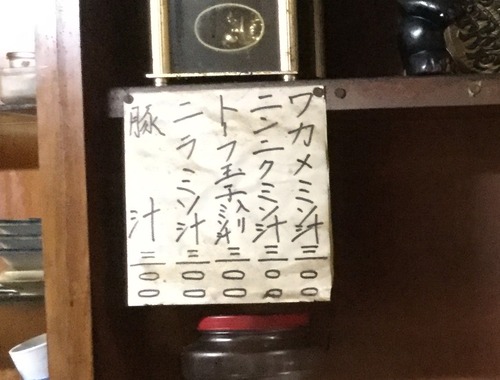 ワカメミソ汁三〇〇
ニンニクミソ汁三〇〇
トーフ玉子入リミソ汁三〇〇
ニラミソ汁三〇〇
豚汁三〇〇